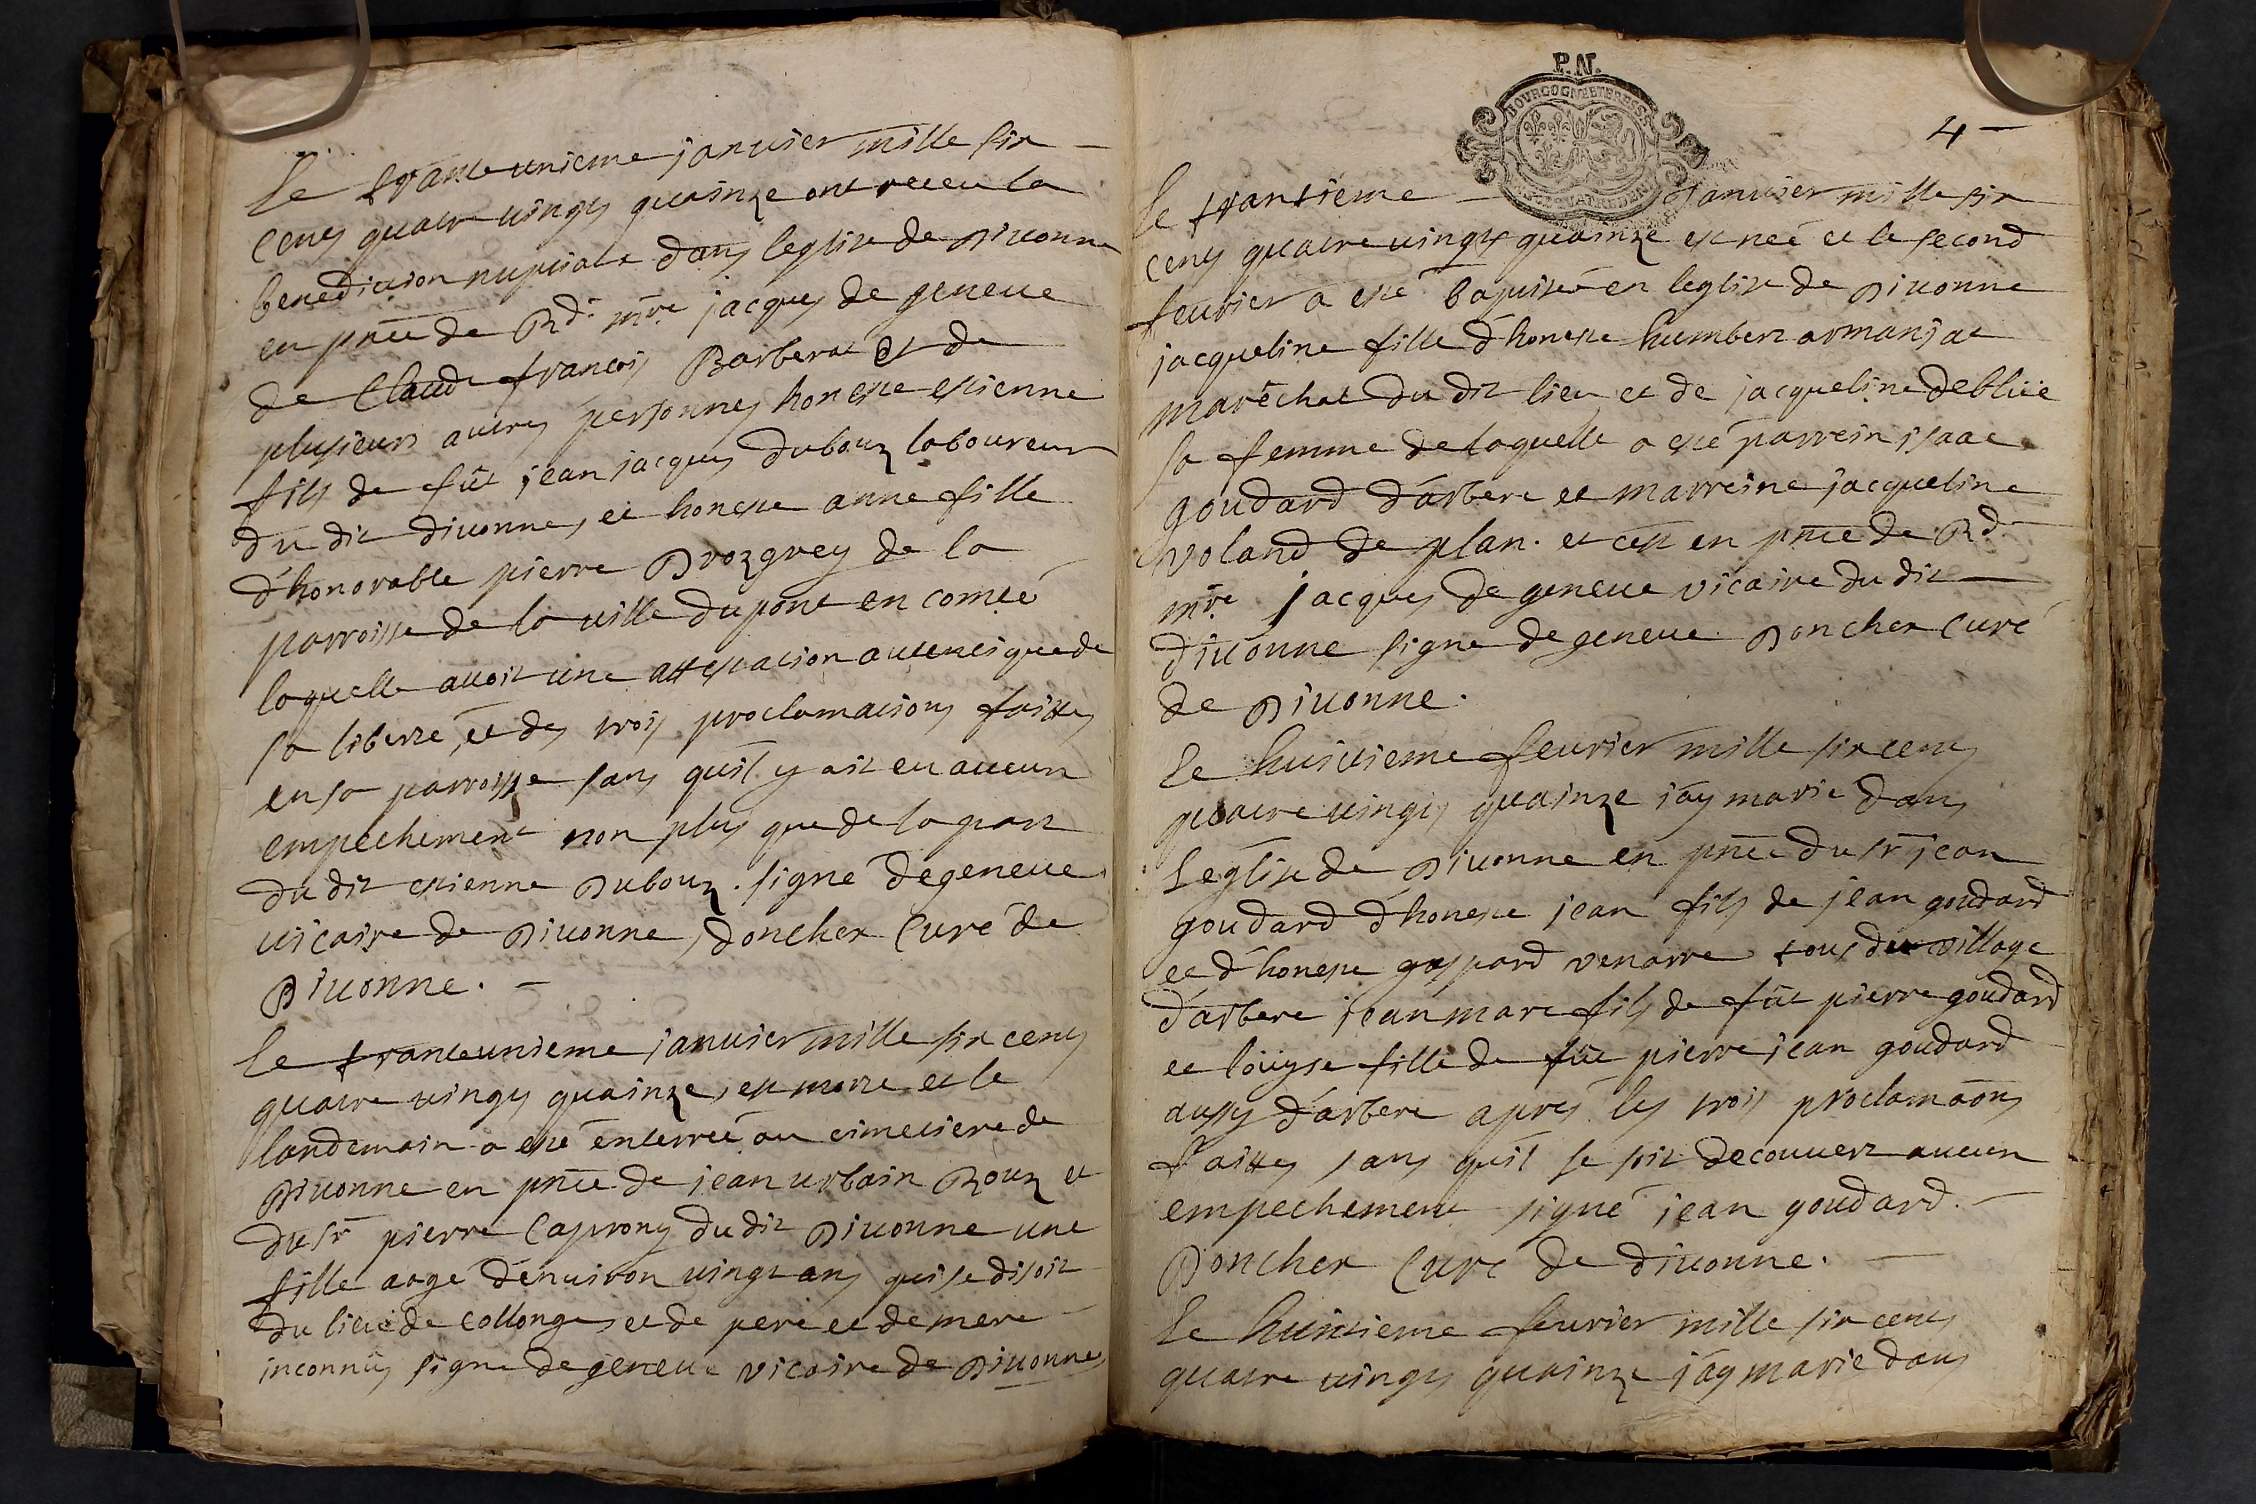 Le trante unieme januier mille six
cens quatre uingts quainze ont receu la
benediction nuptiale dans leglise de Diuonne
en pñce de Rd. mre jacques de geneue
de Claude francois Barberat et de
plusieurs autres personnes honeste estienne
fils de fût jean jacques dubouz laboureur
du dit diuonne, et honeste anne fille
d'honorable pierre Drozgrey de la
parroisse de la uille dupont en comté
laquelle auoit une attestation autentique de
sa liberté, et des trois proclamations faittes
en sa parroisse sans qu'il y ait eu aucun
empechement non plus que de la part
du dit estienne Dubouz. signé degeneue
uicaire de Diuonne, doncher Curé de
Diuonne.
Le trante unieme januier mille six cens
quatre uingts quainze, est morte et le
landemain a esté enterrée au cimetiere de
Diuonne en pñce de jean urbain Rouz et
du sr pierre Caprony du dit Diuonne une
fille aagé d'enuiron uingt ans qui se disoit
du lieu de Collonges et de pere et de mere
inconnus signé degeneue vicaire de Diuonne
P.N.
BOURGOGNE ET BRESSE
QUATRE DEN
4
Le trantieme januier mille six
cens quatre uingts quainze est neé et le second
feurier a esté baptisée en leglise de Diuonne
jacqueline fille d'honeste humbert armanjat
maréchal du dit lieu et de jacqueline deblüe
sa femme de laquelle a esté parrein isaac
goudard d'arbere et marreine jacqueline
voland de plan. et c'est en pñce de Rd.
mre. jacques de geneue vicaire du dit
diuonne signe degeneue Doncher Curé
de Diuonne.
Le huitieme feurier mille six cens
quatre uingts quainze j'ay marié dans
Leglise de Diuonne en pñce du sr jean
goudard d'honeste jean fils de jean goudard
et d'honeste gaspard venarre tous du village
d'arbere jean marc fils de fût pierre goudard
et loüyse fille de fût pierre jean goudard
aussy d'arbere apres les trois proclamaõns
faittes sans qu'il se soit decouuert aucun
empechement signé jean goudard.
Doncher Curé de diuonne.
Le huitieme feurier mille six cens
quatre uingts quainze j'ay marié dans